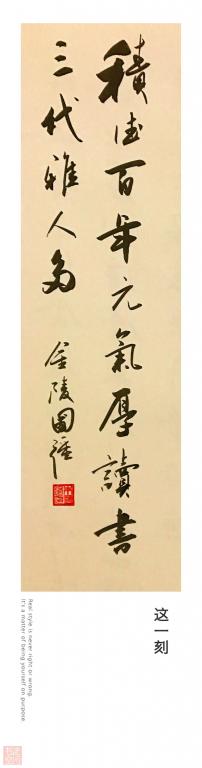 積德百年元氣厚讀書
三代雅人多
金陵
这一刻
Real style is never right or wrong.
It's a matter of being yourself on purpose.